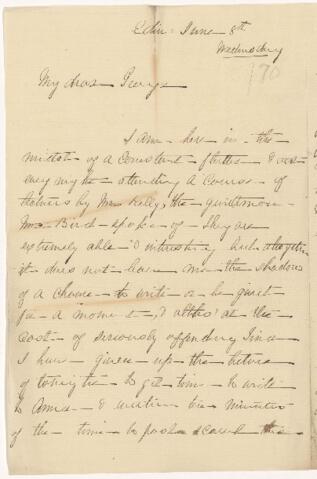 Edin: June 8th
Wednesday
70
My dear George
I am here in the
midst of a constant flutter & out
every night attending a course of
lectures by Mr Kelly, the gentleman
Mrs Bird spoke of - they are
extremely able & interesting but altogether
it does not leave me the shadow
of a chance to write or be quiet
for a moment, & altho' at the
cost of seriously offending Tina
I have given up the lecture
of tonight to get time to write
to Anna & within ten minutes
of the time to post I send this